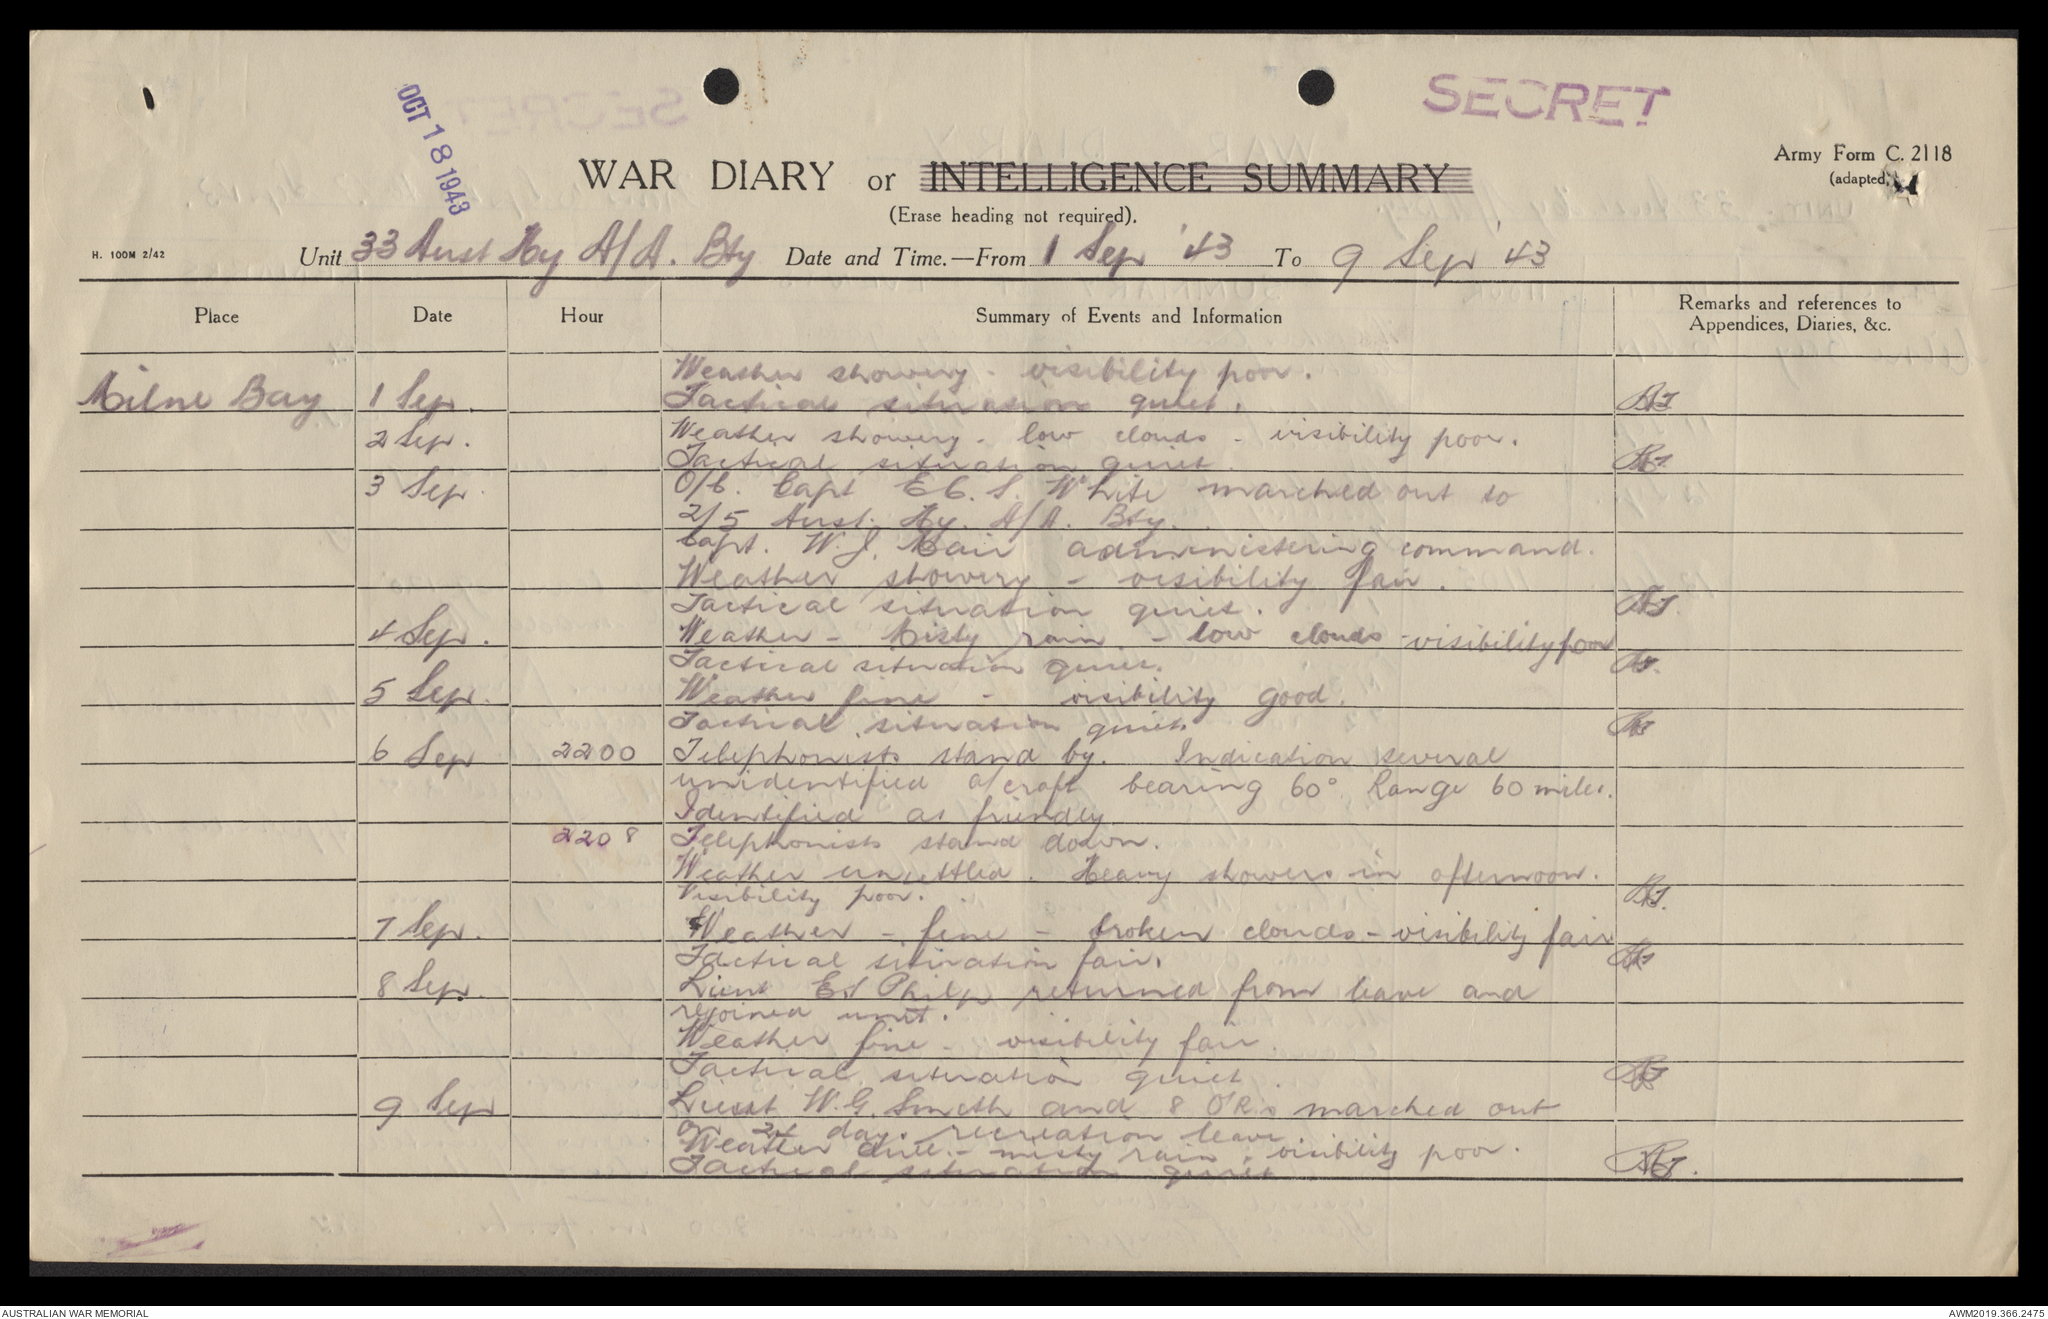 OCT 18 1943
SECRET
Army Form C. 2118
(adapted)
WAR DIARY or INTELLIGENCE SUMMARY
(Erase heading not required).
H. 100M 2/42
Unit 33 Aust Hy A/A. Bty Date and Time.—From 1 Sep '43 To 9 Sep '43
Place Date Hour Summary of Events and Information Remarks and references to
Appendices, Diaries, &c.
Weather showery - visibility poor.
Milne Bay 1 Sep. Tactical situation quiet.
2 Sep. Weather showery - low clouds - visibility poor.
Tactical situation quiet.
3 Sep. O/C. Capt E C. S. White marched out to
2/5 Aust. Hy. A/A. Bty.
Capt. W. J. Mair administering command.
Weather showery - visibility fair.
Tactical situation quiet.
4 Sep. Weather - Misty rain - low clouds - visibility poor
Tactical situation quiet.
5 Sep. Weather fine - visibility good.
Tactical situation quiet.
6 Sep 2200 Telephonists stand by. Indication several
unidentified a/craft bearing 60° Range 60 miles.
Identified as friendly
2208 Telephonists stand down.
Weather unsettled. Heavy showers in afternoon.
Visibility poor.
7 Sep. Weather - fine - broken clouds - visibility fair
Tactical situation fair.
8 Sep. Lieut Philp returned from leave and
rejoined unit.
Weather fine - visibility fair.
Tactical situation quiet.
9 Sep Lieut W. G. Smith and 8 OR's marched out
on 24 days recreation leave
Weather dull - misty rain, visibility poor.
Tactical situation quiet
AUSTRALIAN WAR MEMORIAL
AWM2019.366.2475